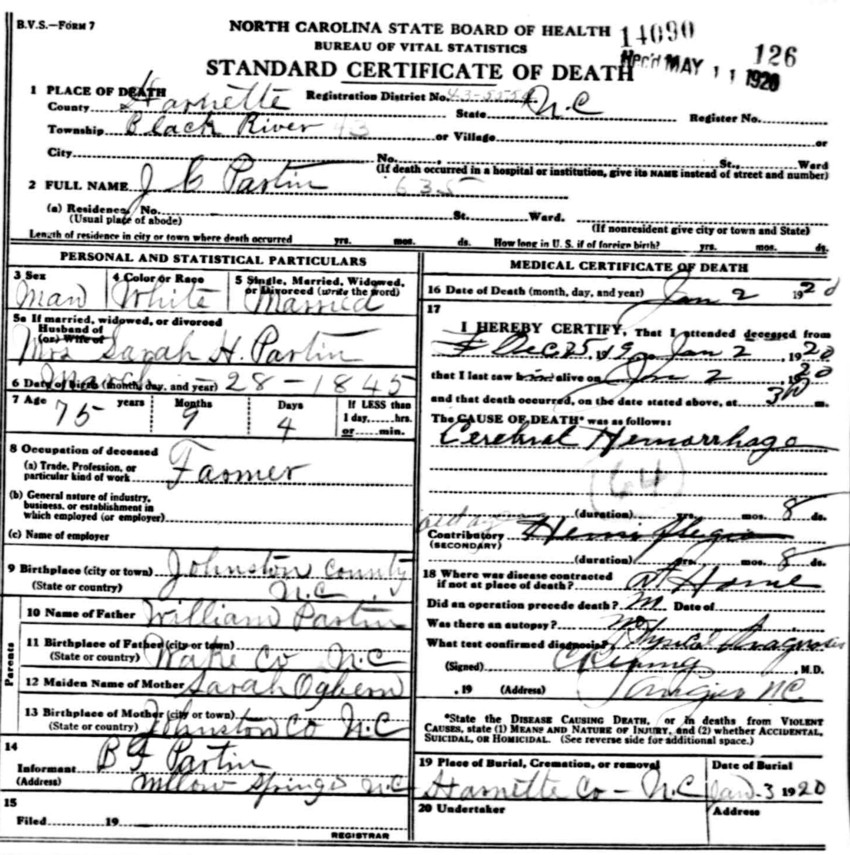 B.V.S.—Form 7
NORTH CAROLINA STATE BOARD OF HEALTH
BUREAU OF VITAL STATISTICS
STANDARD CERTIFICATE OF DEATH
14090
126
MAY 11 1920
1 PLACE OF DEATH
County Harnette Registration District No. 43-5554 State N.C Register No.
Township Black River 43 or Village or
City No. , St., Ward
(If death occurred in a hospital or institution, give its NAME instead of street and number)
2 FULL NAME J C Partin 635
(a) Residence, No. St. Ward.
(Usual place of abode) (If nonresident give city or town and State)
Length of residence in city or town where death occurred yrs. mos. ds. How long in U. S. if of foreign birth? yrs. mos. ds.
PERSONAL AND STATISTICAL PARTICULARS
3 Sex 4 Color or Race 5 Single, Married, Widowed, or Divorced (write the word)
Man White Married
5a If married, widowed, or divorced
Husband of
(or) Wife of
Mrs Sarah H. Partin
6 Date of birth (month, day, and year) March - 28 - 1845
7 Age 75 years Months 9 Days 4 If LESS than
1 day, hrs.
or min.
8 Occupation of deceased
(a) Trade, Profession, or
particular kind of work Farmer
(b) General nature of industry,
business, or establishment in
which employed (or employer)
(c) Name of employer
9 Birthplace (city or town) Johnston County
(State or country) N.C
Parents
10 Name of Father William Partin
11 Birthplace of Father (city or town)
(State or country) Wake Co N.C
12 Maiden Name of Mother Sarah Ogburn
13 Birthplace of Mother (city or town)
(State or country) Johnston Co N.C
14
Informant B F Partin
(Address) Willow Springs N.C
15
Filed 19
REGISTRAR
MEDICAL CERTIFICATE OF DEATH
16 Date of Death (month, day, and year) Jan 2 1920
17
I HEREBY CERTIFY, That I attended deceased from
Dec 25, 19 Jan 2 1920
that I last saw him alive on Jan 2 1920
and that death occurred, on the date stated above, at 3 P m.
The CAUSE OF DEATH* was as follows:
Cerebral Hemorrhage
64
(duration) yrs. mos. 8 ds.
Contributory Hemiplegia
(SECONDARY)
(duration) yrs. mos. 8 ds.
18 Where was disease contracted
if not at place of death? at Home
Did an operation precede death? Date of
Was there an autopsy?
What test confirmed diagnosis? Physical Diagnosis
(Signed) , M.D.
, 19 (Address) Angier N.C.
*State the DISEASE CAUSING DEATH, or in deaths from VIOLENT
CAUSES, state (1) MEANS AND NATURE OF INJURY, and (2) whether ACCIDENTAL,
SUICIDAL, OR HOMICIDAL. (See reverse side for additional space.)
19 Place of Burial, Cremation, or removal Date of Burial
Harnette Co - N.C Jan-3 1920
20 Undertaker Address